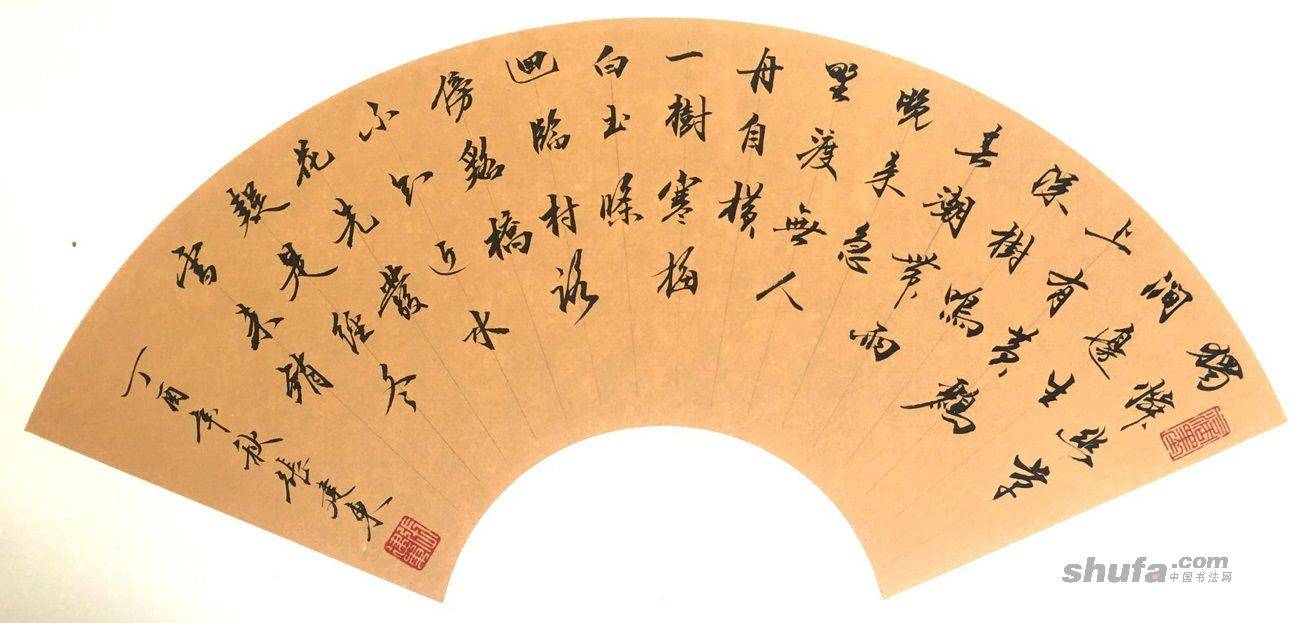 獨憐幽草
澗邊生
上有黃鸝
深樹鳴
春潮帶雨
晚來急
野渡無人
舟自橫
一樹寒梅
白玉條
迴臨村路
傍谿橋
不知近水
花先發
疑是經冬
雪未銷
丁酉年秋張慶東
shufa.com
中国书法网